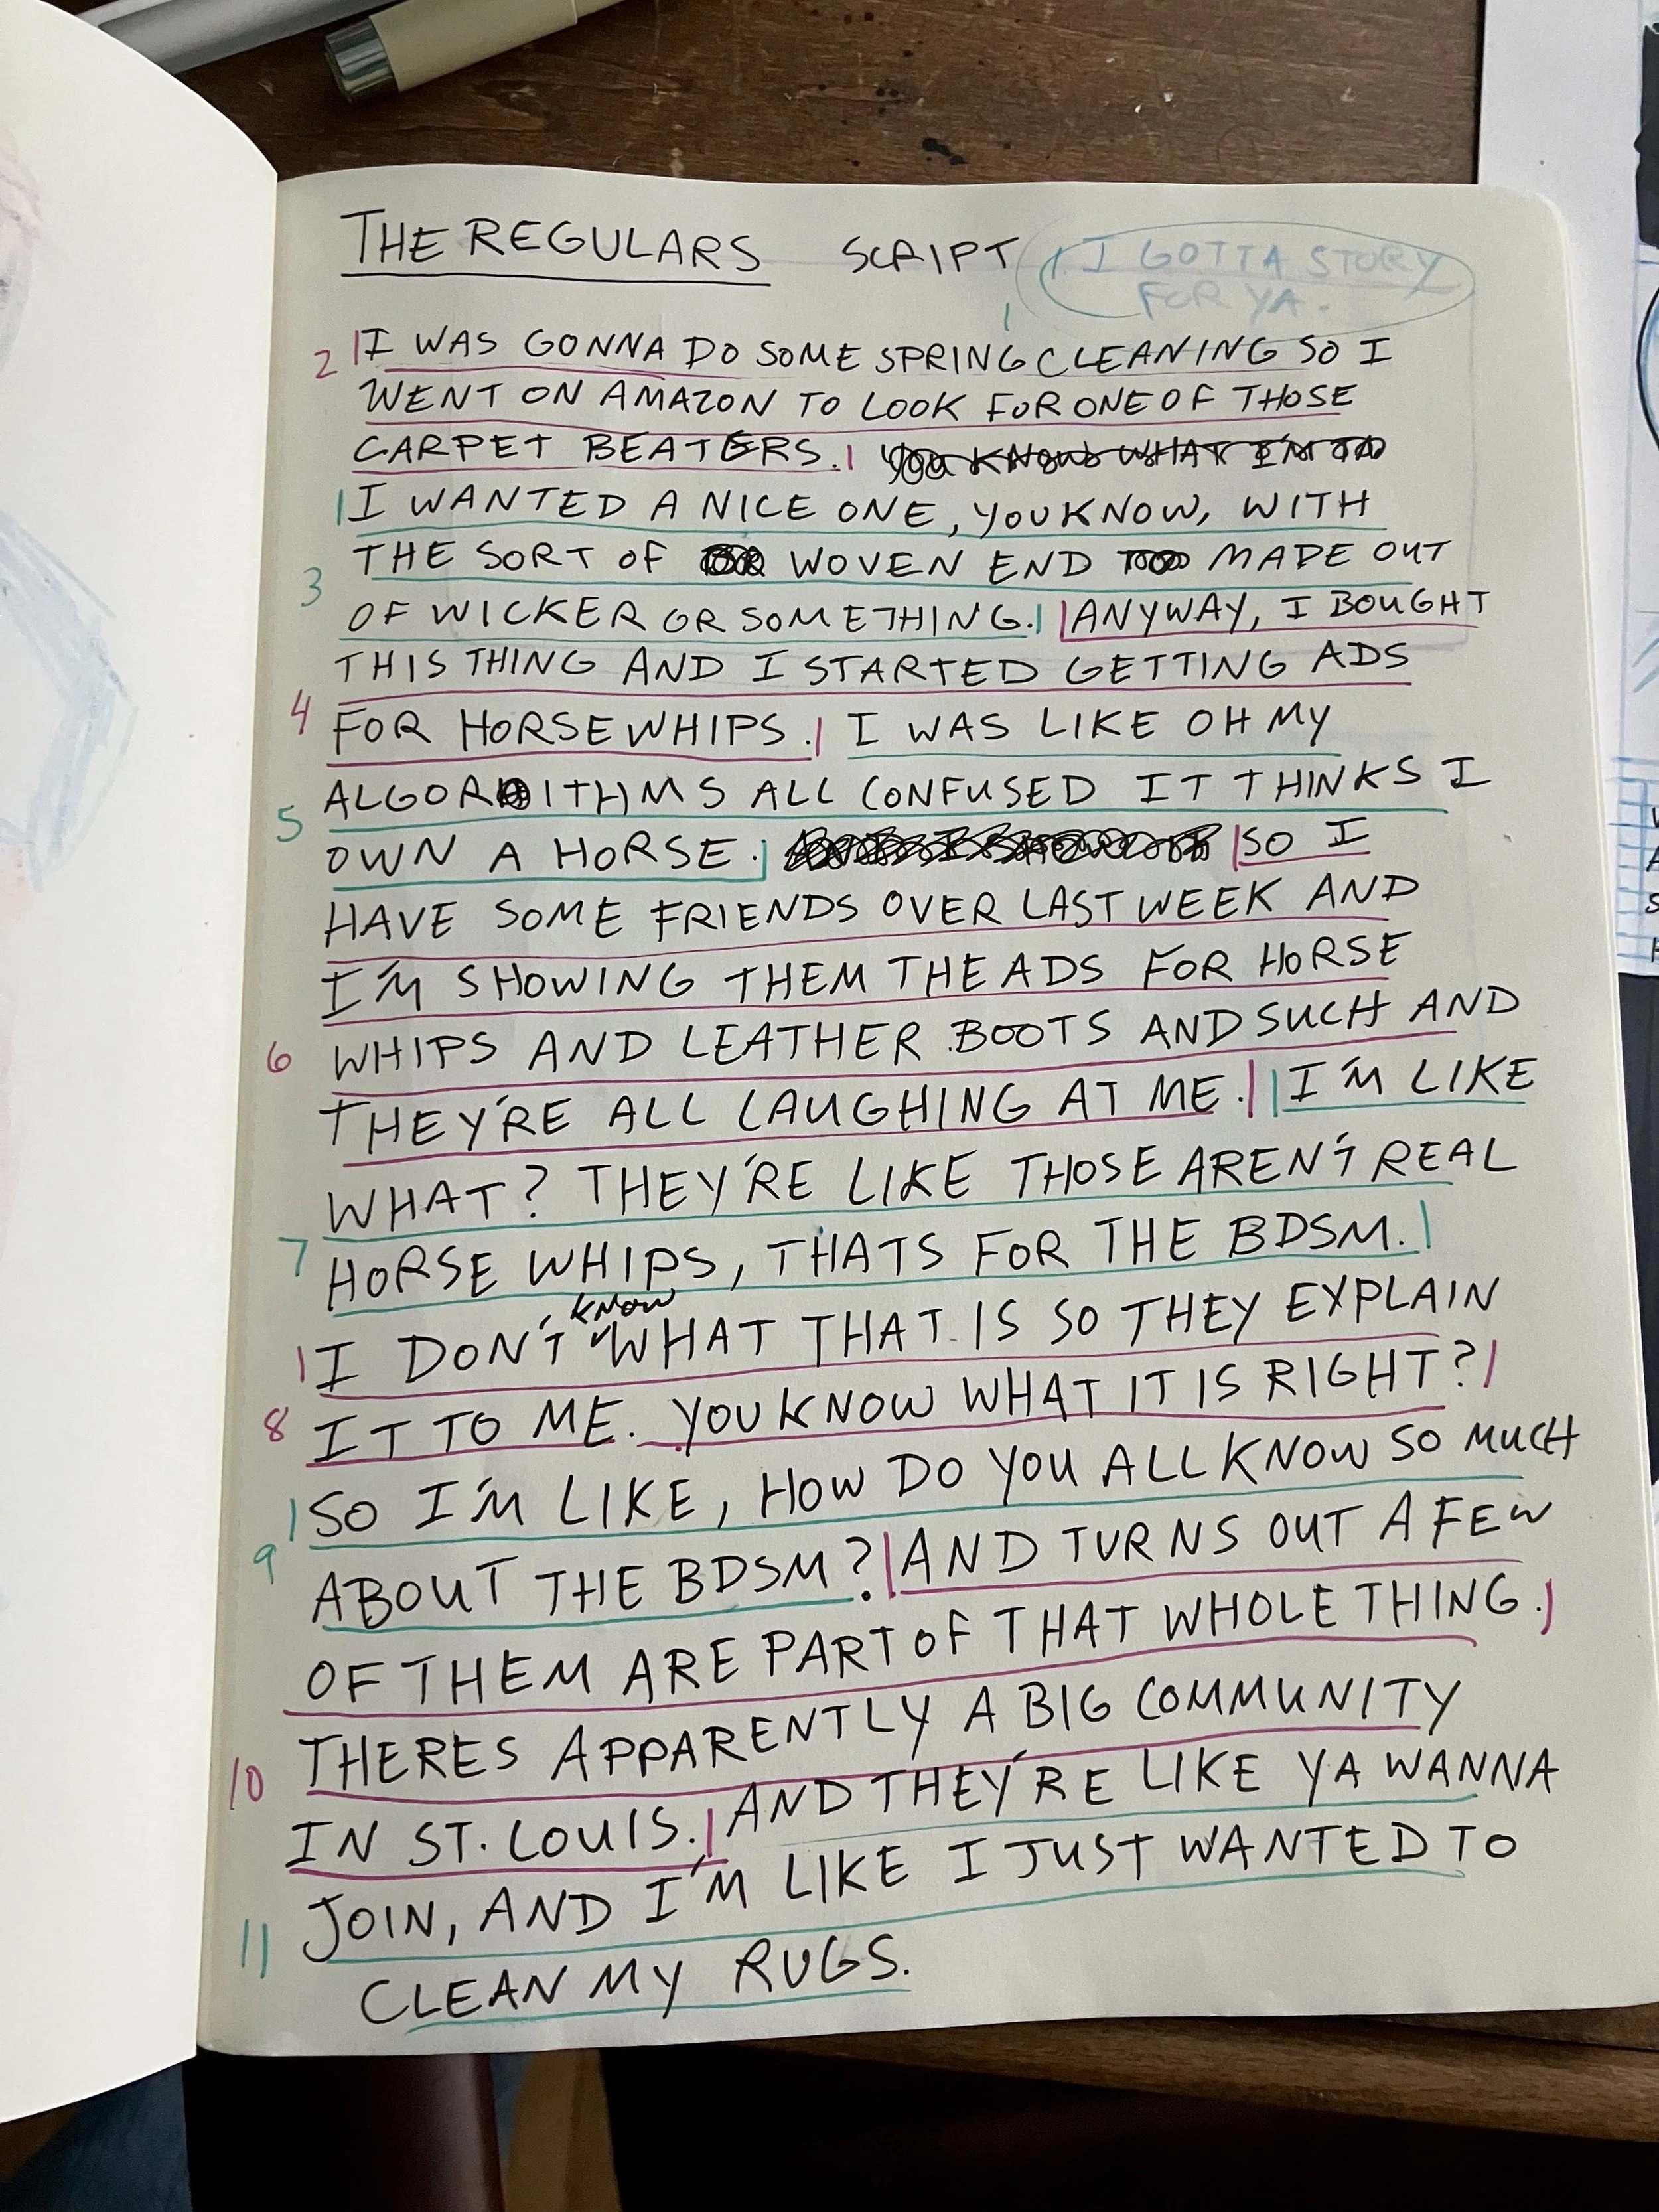 THE REGULARS SCRIPT
1. I GOTTA STORY
FOR YA.
1
2 I WAS GONNA DO SOME SPRING CLEANING SO I
WENT ON AMAZON TO LOOK FOR ONE OF THOSE
CARPET BEATERS. YOU KNOW WHAT I'M
I WANTED A NICE ONE, YOU KNOW, WITH
THE SORT OF WOVEN END MADE OUT
3
OF WICKER OR SOMETHING. ANYWAY, I BOUGHT
THIS THING AND I STARTED GETTING ADS
4
FOR HORSE WHIPS. I WAS LIKE OH MY
ALGORITHMS ALL CONFUSED IT THINKS I
5
OWN A HORSE. SO I
HAVE SOME FRIENDS OVER LAST WEEK AND
I'M SHOWING THEM THE ADS FOR HORSE
6 WHIPS AND LEATHER BOOTS AND SUCH AND
THEY'RE ALL LAUGHING AT ME. I'M LIKE
WHAT? THEY'RE LIKE THOSE AREN'T REAL
7 HORSE WHIPS, THATS FOR THE BDSM.
I DON'T know WHAT THAT IS SO THEY EXPLAIN
8 IT TO ME. YOU KNOW WHAT IT IS RIGHT?
SO I'M LIKE, HOW DO YOU ALL KNOW SO MUCH
9 ABOUT THE BDSM? AND TURNS OUT A FEW
OF THEM ARE PART OF THAT WHOLE THING.
10 THERES APPARENTLY A BIG COMMUNITY
IN ST. LOUIS. AND THEY'RE LIKE YA WANNA
11 JOIN, AND I'M LIKE I JUST WANTED TO
CLEAN MY RUGS.